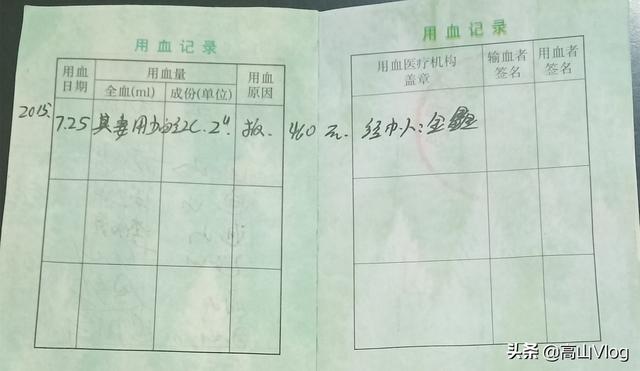 用血记录
用血日期 用血量 用血原因
全血(ml) 成份(单位)
2015.
7.25 其妻用 2u. 报、460元. 经办人:金鑫
用血记录
用血医疗机构盖章 输血者签名 用血者签名
头条 @高山Vlog